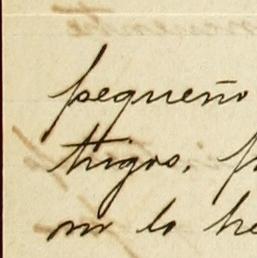 pequeño
trigos.
no lo he